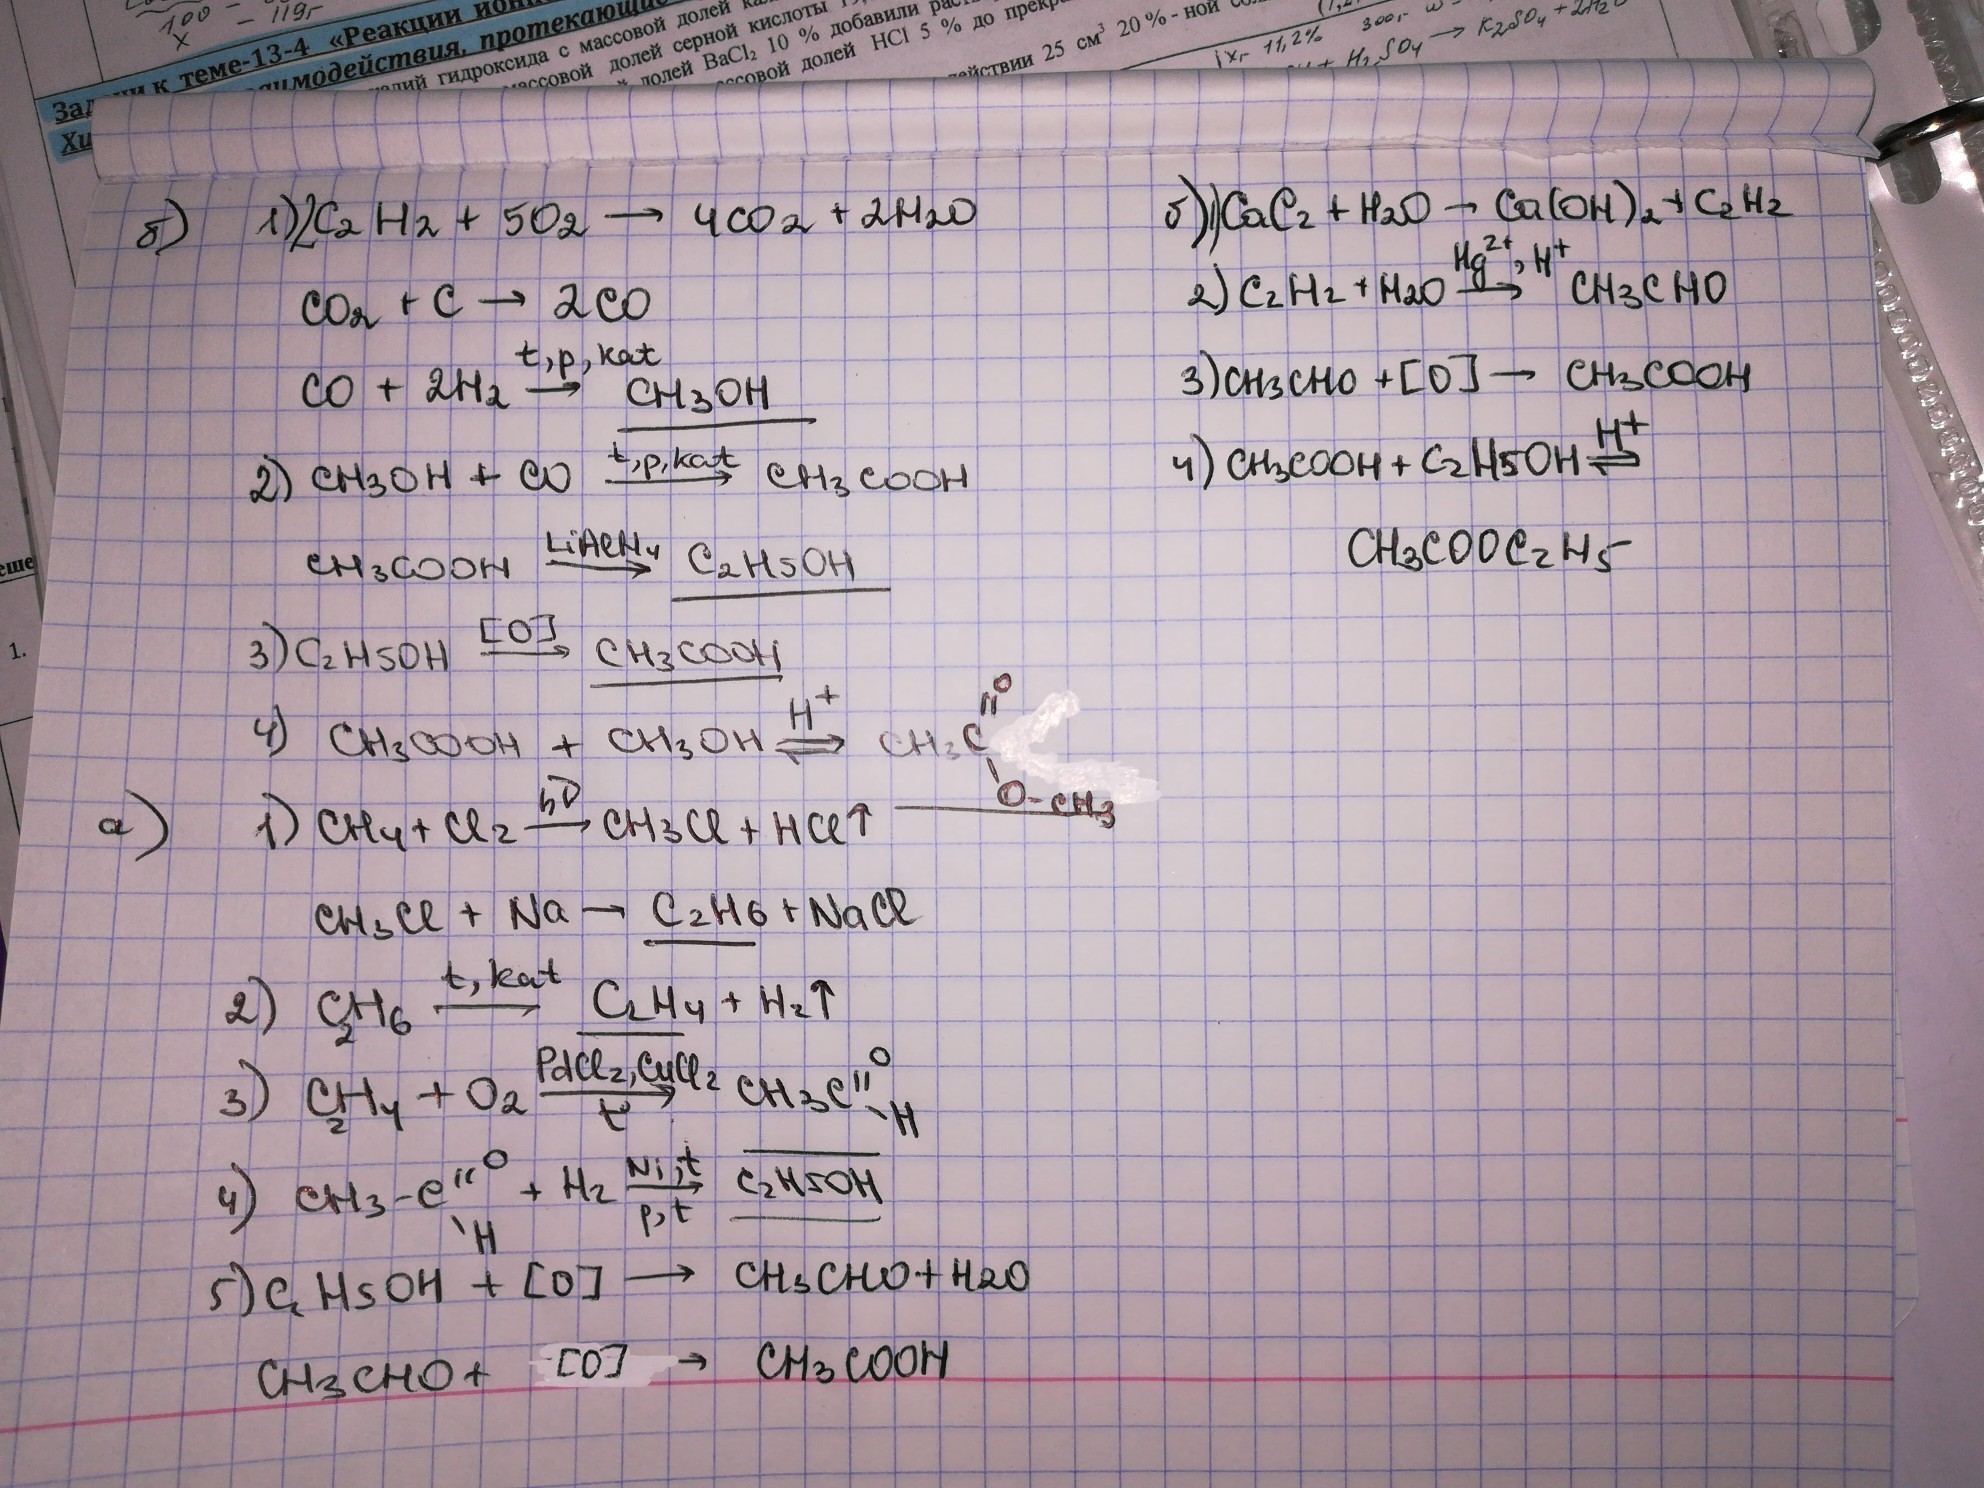 100 -
x - 119г
Задачи к теме-13-4 «Реакции
Хи
взаимодействия, протекающие
гидроксида с массовой долей
массовой долей серной кислоты
долей BaCl₂ 10 % добавили
массовой долей HCl 5 % до
действии 25 см³ 20 % - ной
хг 11,2% 300г
H₂SO₄ → K₂SO₄ + 2H₂O
1.
б) 1) 2C₂H₂ + 5O₂ → 4CO₂ + 2H₂O
CO₂ + C → 2CO
t, p, kat
CO + 2H₂ → CH₃OH
t, p, kat
2) CH₃OH + CO → CH₃COOH
LiAlH₄
CH₃COOH → C₂H₅OH
[O]
3) C₂H₅OH → CH₃COOH
H⁺
4) CH₃COOH + CH₃OH ⇌ CH₃C
=O
O-CH₃
а) 1) CH₄ + Cl₂ →(hν) CH₃Cl + HCl↑
CH₃Cl + Na → C₂H₆ + NaCl
t, kat
2) C₂H₆ → C₂H₄ + H₂↑
PdCl₂, CuCl₂
3) C₂H₄ + O₂ → CH₃C =O
t° H
Ni, t
4) CH₃-C =O + H₂ → C₂H₅OH
H p, t
5) C₂H₅OH + [O] → CH₃CHO + H₂O
CH₃CHO + [O] → CH₃COOH
б) 1) CaC₂ + H₂O → Ca(OH)₂ + C₂H₂
Hg²⁺, H⁺
2) C₂H₂ + H₂O → CH₃CHO
3) CH₃CHO + [O] → CH₃COOH
H⁺
4) CH₃COOH + C₂H₅OH ⇌
CH₃COOC₂H₅